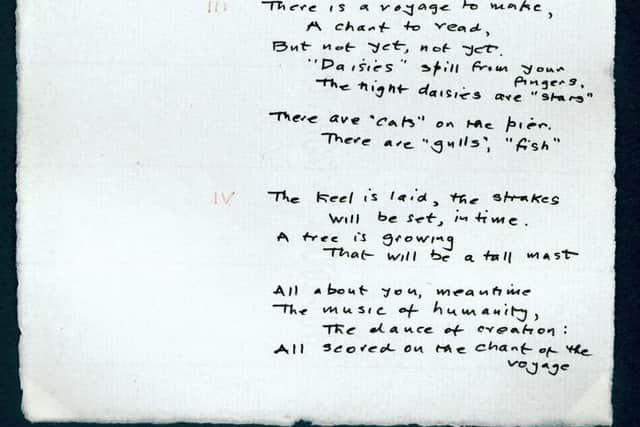 III There is a voyage to make,
A chant to read,
But not yet, not yet.
"Daisies" spill from your fingers.
The night daisies are "stars"
There are "cats" on the pier.
There are "gulls", "fish"
IV The keel is laid, the strakes
will be set, in time.
A tree is growing
That will be a tall mast
All about you, meantime
The music of humanity,
The dance of creation:
All scored on the chant of the voyage